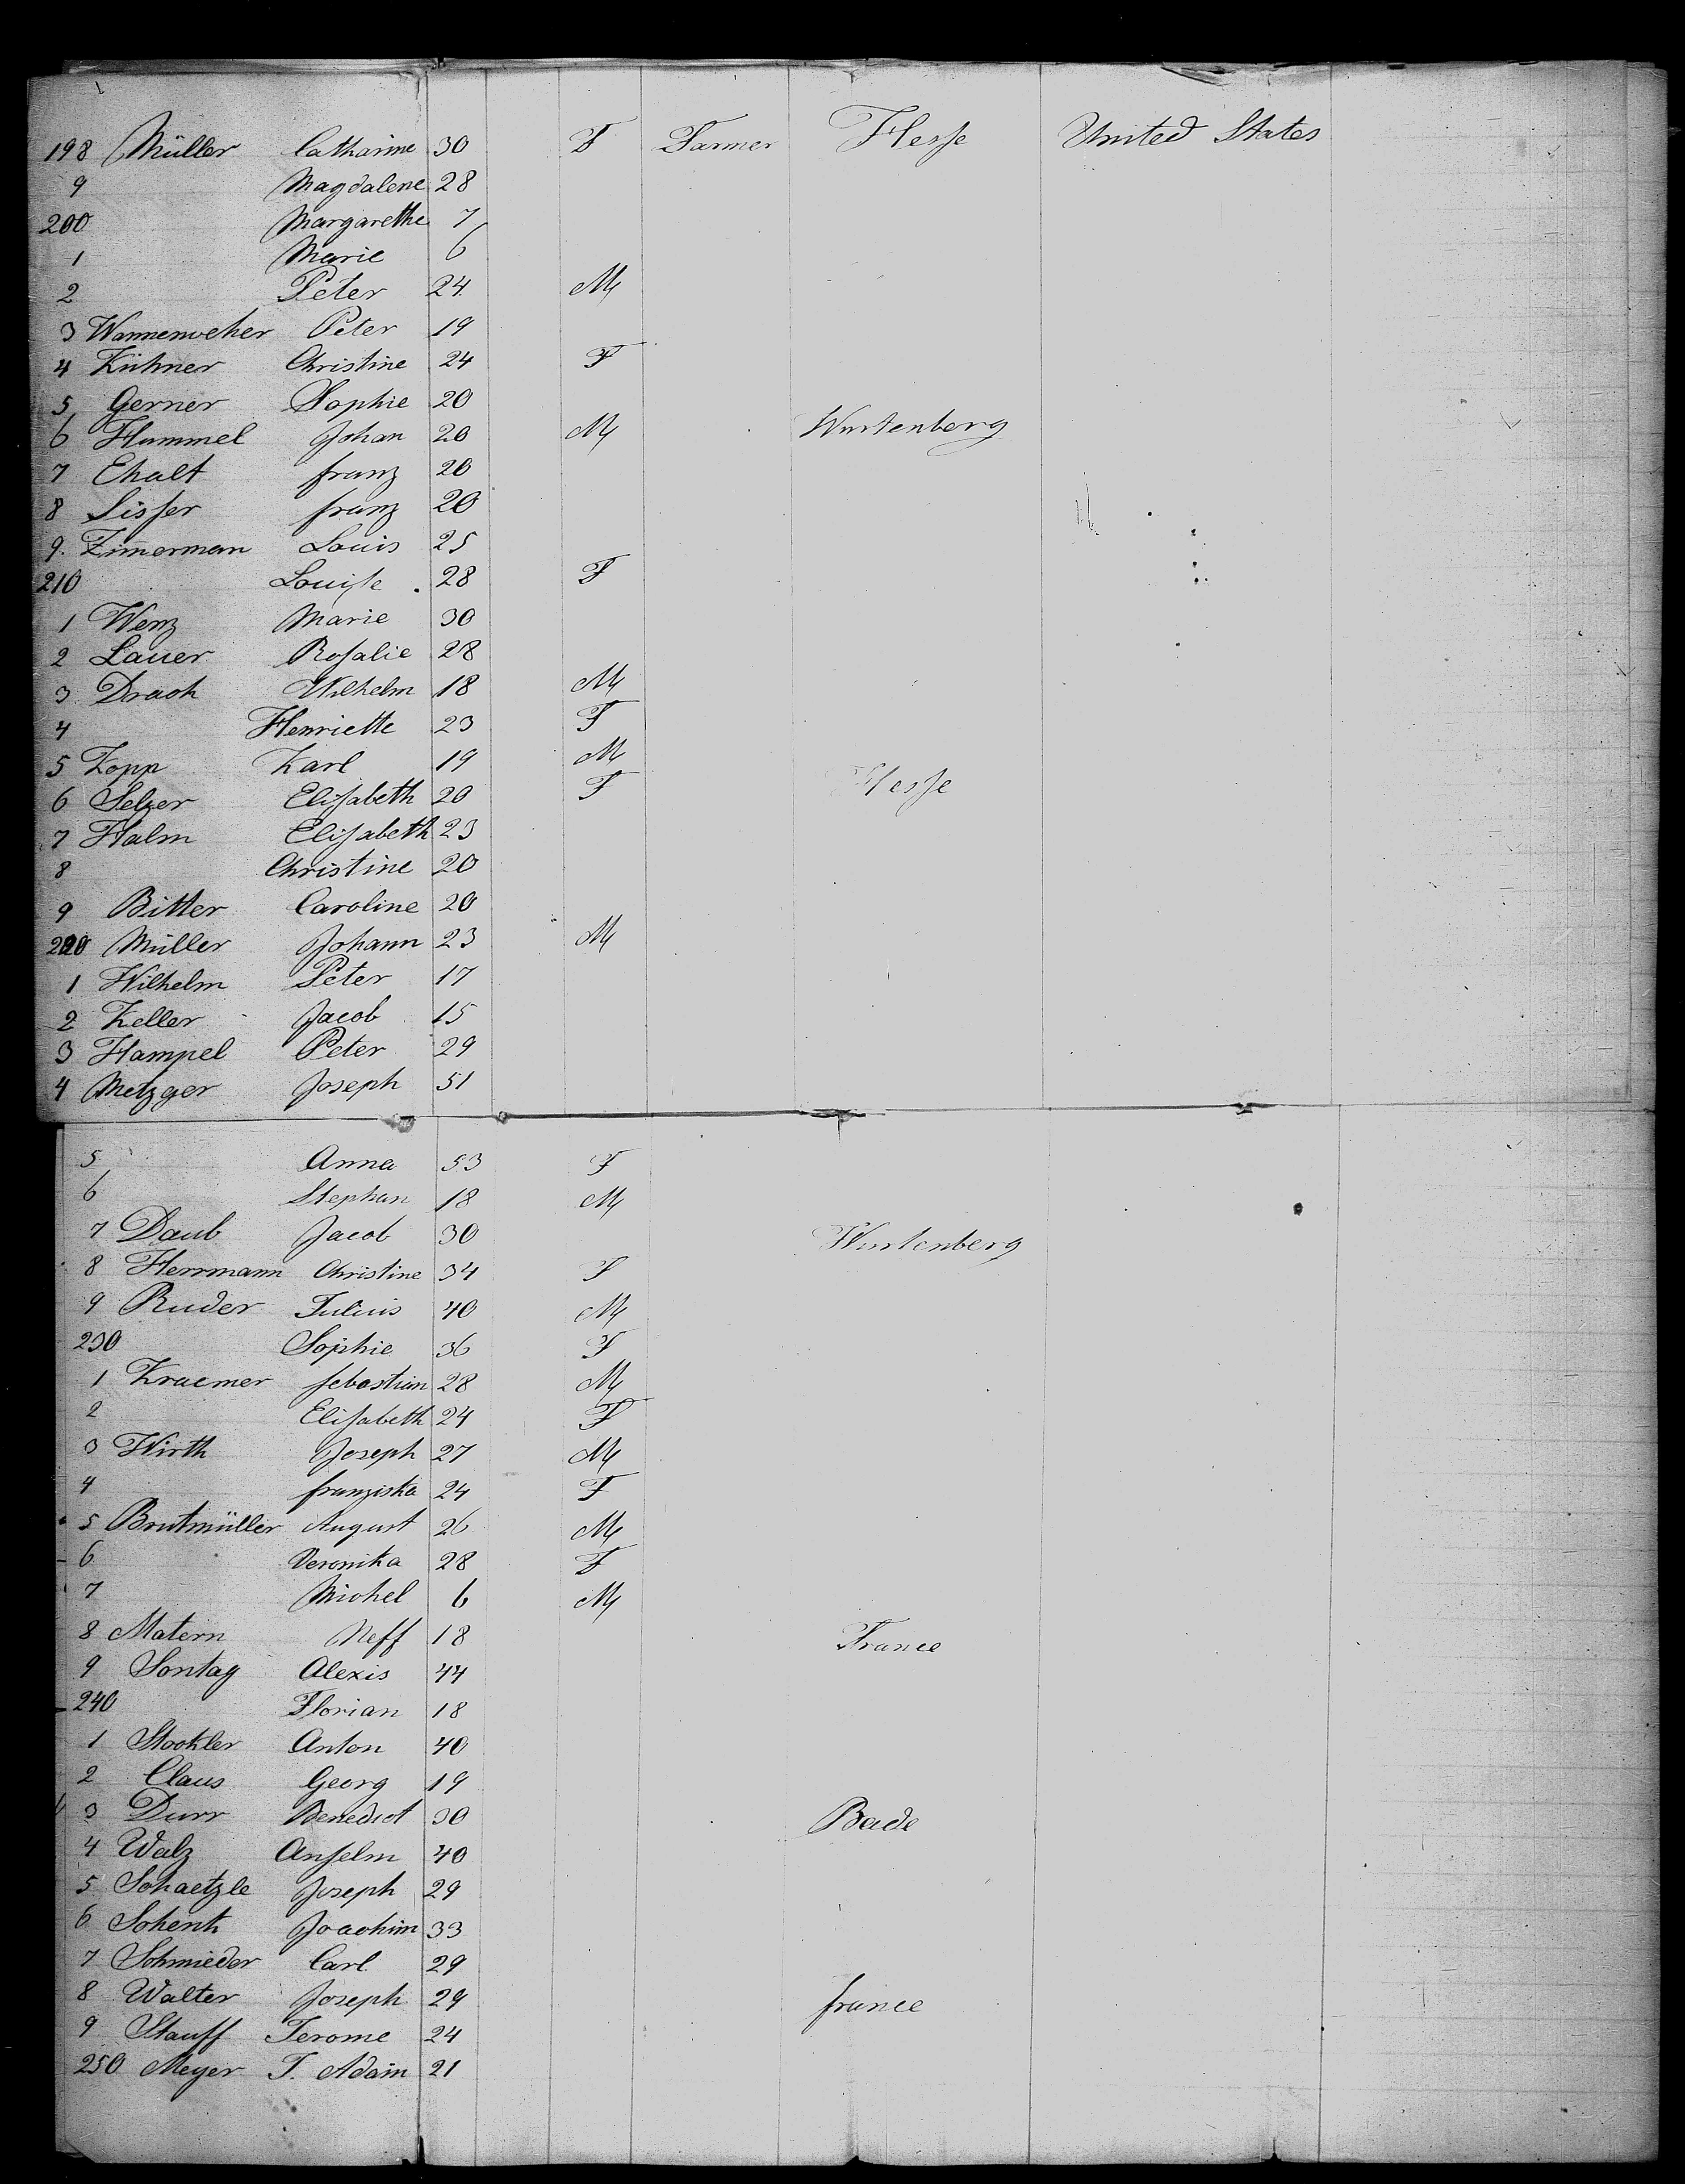 198 Müller Catharine 30 F Farmer Hesse United States
9 Magdalene 28
200 Margarethe 7
1 Marie 6
2 Peter 24 M
3 Wannenweher Peter 19
4 Kühner Christine 24 F
5 Gerner Sophie 20
6 Hummel Johan 20 M Wurtenberg
7 Ehalt franz 20
8 Sisser franz 20
9. Zimerman Louis 25
210 Louise 28 F
1 Wenz Marie 30
2 Lauer Rosalie 28
3 Drach Wilhelm 18 M
4 Henriette 23 F
5 Kopp Karl 19 M
6 Selzer Elisabeth 20 F Hesse
7 Halm Elisabeth 23
8 Christine 20
9 Bitter Caroline 20
220 Müller Johann 23 M
1 Wilhelm Peter 17
2 Keller Jacob 15
3 Hampel Peter 29
4 Metzger Joseph 51
5 Anna 53 F
6 Stephan 18 M
7 Daub Jacob 30 Wurtenberg
8 Herrmann Christine 34 F
9 Ruder Julius 40 M
230 Sophie 36 F
1 Kraemer sebastian 28 M
2 Elisabeth 24 F
3 Wirth Joseph 27 M
4 franziska 24 F
5 Brutmüller August 26 M
6 Veronika 28 F
7 Michel 6 M
8 Matern Neff 18 France
9 Sontag Alexis 44
240 Florian 18
1 Stockler Anton 40
2 Claus Georg 19
3 Durr Benedict 30 Bade
4 Walz Anselm 40
5 Schaetzle Joseph 29
6 Schenk Joachim 33
7 Schmieder Carl 29
8 Walter Joseph 29 france
9 Stauff Jerome 24
250 Meyer J. Adam 21